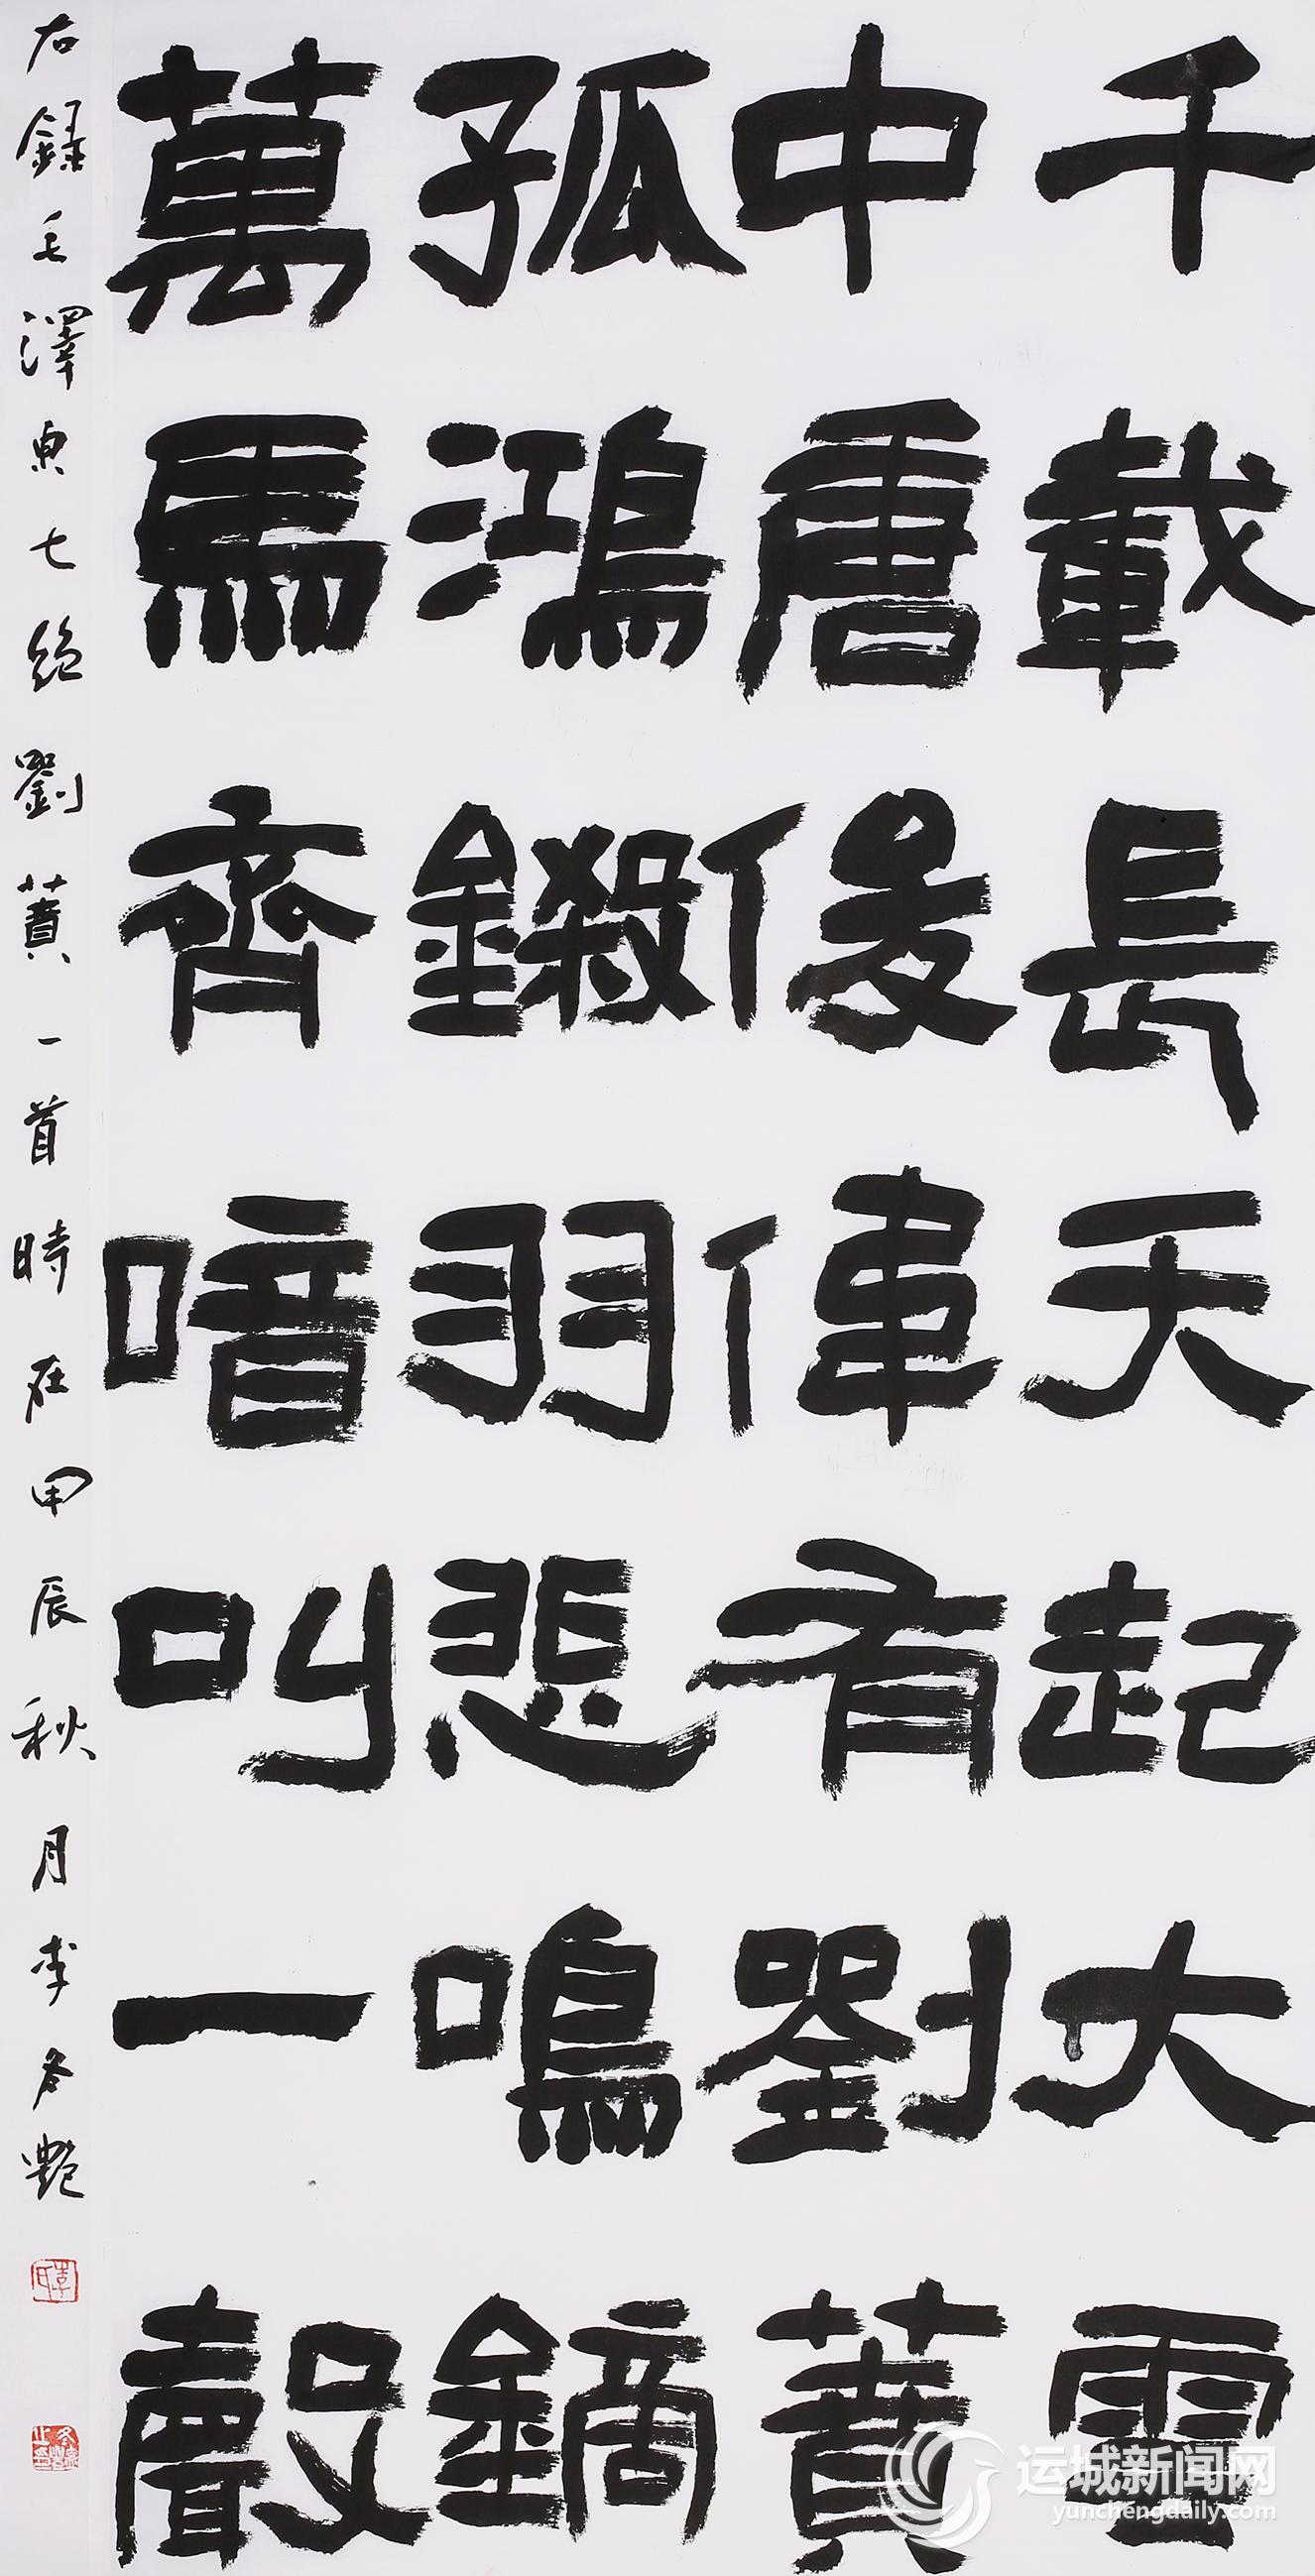 千載長天起大雲
中唐俊偉有劉蕡
孤鴻鎩羽悲鳴鏑
萬馬齊喑叫一聲
右錄毛澤東七絕劉蕡一首時在甲辰秋月李冬艷
运城新闻网
yunchengdaily.com